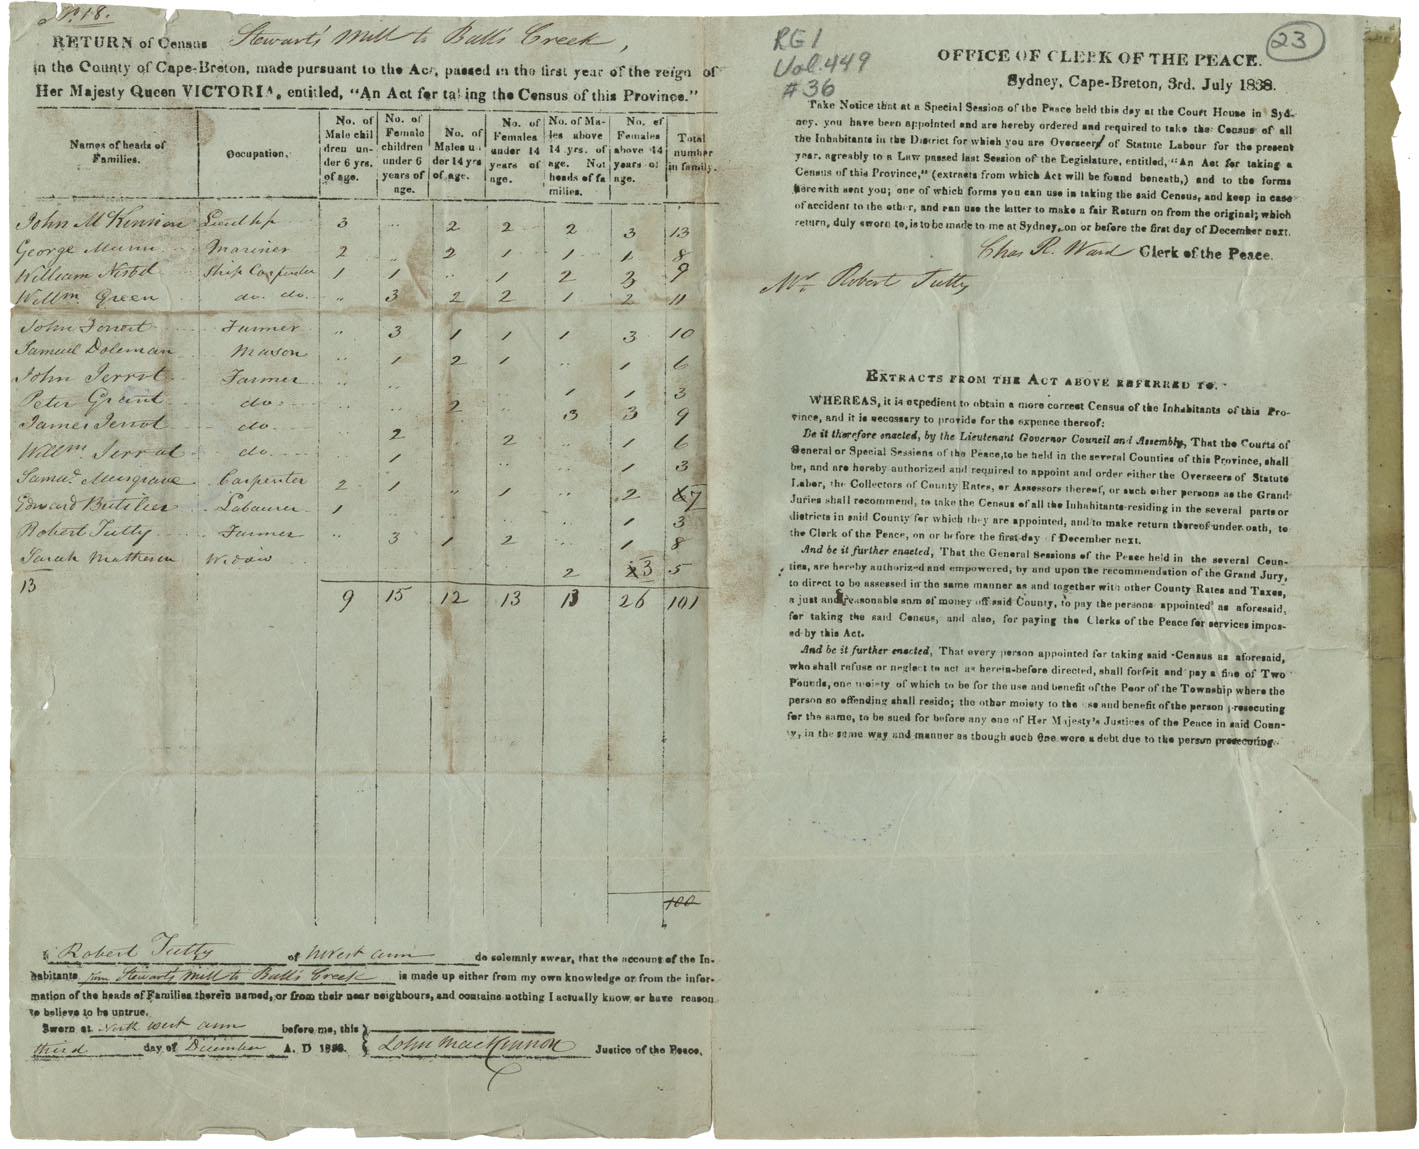 No. 18.
RETURN of Census Stewart's Mill to Ball's Creek,
in the County of Cape-Breton, made pursuant to the Act, passed in the first year of the reign of
Her Majesty Queen VICTORIA, entitled, "An Act for taking the Census of this Province."
Names of heads of Families. Occupation. No. of Male children under 6 yrs. of age. No. of Female children under 6 years of age. No. of Males under 14 yrs of age. No. of Females under 14 years of age. No. of Males above 14 yrs. of age. Not heads of families. No. of Females above 14 years of age. Total number in family.
John McKinnon 3 .. 2 2 2 3 13
George Munn Mariner 2 .. 2 1 1 1 8
William Nisbet Ship Carpenter 1 1 .. 1 2 3 9
Willm Green do. do. .. 3 2 2 1 2 11
John Farmer .. 3 1 1 1 3 10
Samuel Doleman Mason .. 1 2 1 .. 1 6
John Jerrot Farmer .. .. 1 1 3
Peter Grant do. .. .. 2 .. 3 3 9
James Jerrot do. 2 .. 2 1 6
Willm. Jerrot do. 1 .. 1 3
Samul. Musgrave Carpenter 2 1 .. 1 2 7
Edward Butcher Labourer 1 .. .. .. 1 3
Robert Tutty Farmer .. 3 1 2 1 8
Sarah Matheson Widow 2 3 5
13
9 15 12 13 13 26 101
100
I Robert Tutty of N West arm do solemnly swear, that the account of the In-
habitants from Stewarts Mill to Ball's Creek is made up either from my own knowledge or from the infor-
mation of the heads of Families therein named, or from their near neighbours, and contains nothing I actually know or have reason
to believe to be untrue.
Sworn at North west arm before me, this
third day of December A. D 1838. John MacKinnon Justice of the Peace.
RG1
Vol. 449
#36
23
OFFICE OF CLERK OF THE PEACE.
Sydney, Cape-Breton, 3rd. July 1838.
Take Notice that at a Special Session of the Peace held this day at the Court House in Syd-
ney, you have been appointed and are hereby ordered and required to take the Census of all
the Inhabitants in the District for which you are Overseer of Statute Labour for the present
year, agreably to a Law passed last Session of the Legislature, entitled, "An Act for taking a
Census of this Province," (extracts from which Act will be found beneath,) and to the forms
herewith sent you; one of which forms you can use in taking the said Census, and keep in case
of accident to the other, and can use the latter to make a fair Return on from the original; which
return, duly sworn to, is to be made to me at Sydney, on or before the first day of December next.
Chas R. Ward Clerk of the Peace.
Mr. Robert Tutty
EXTRACTS FROM THE ACT ABOVE REFERRED TO.
WHEREAS, it is expedient to obtain a more correct Census of the Inhabitants of this Pro-
vince, and it is necessary to provide for the expence thereof:
Be it therefore enacted, by the Lieutenant Governor Council and Assembly, That the Courts of
General or Special Sessions of the Peace, to be held in the several Counties of this Province, shall
be, and are hereby authorized and required to appoint and order either the Overseers of Statute
Labor, the Collectors of County Rates, or Assessors thereof, or such other persons as the Grand
Juries shall recommend, to take the Census of all the Inhabitants residing in the several parts or
districts in said County for which they are appointed, and to make return thereof under oath, to
the Clerk of the Peace, on or before the first day of December next.
And be it further enacted, That the General Sessions of the Peace held in the several Coun-
ties, are hereby authorized and empowered, by and upon the recommendation of the Grand Jury,
to direct to be assessed in the same manner as and together with other County Rates and Taxes,
a just and reasonable sum of money off said County, to pay the persons appointed as aforesaid,
for taking the said Census, and also, for paying the Clerks of the Peace for services impos-
ed by this Act.
And be it further enacted, That every person appointed for taking said Census as aforesaid,
who shall refuse or neglect to act as herein-before directed, shall forfeit and pay a fine of Two
Pounds, one moiety of which to be for the use and benefit of the Poor of the Township where the
person so offending shall reside; the other moiety to the use and benefit of the person prosecuting
for the same, to be sued for before any one of Her Majesty's Justices of the Peace in said Coun-
ty, in the same way and manner as though such fine were a debt due to the person prosecuting.